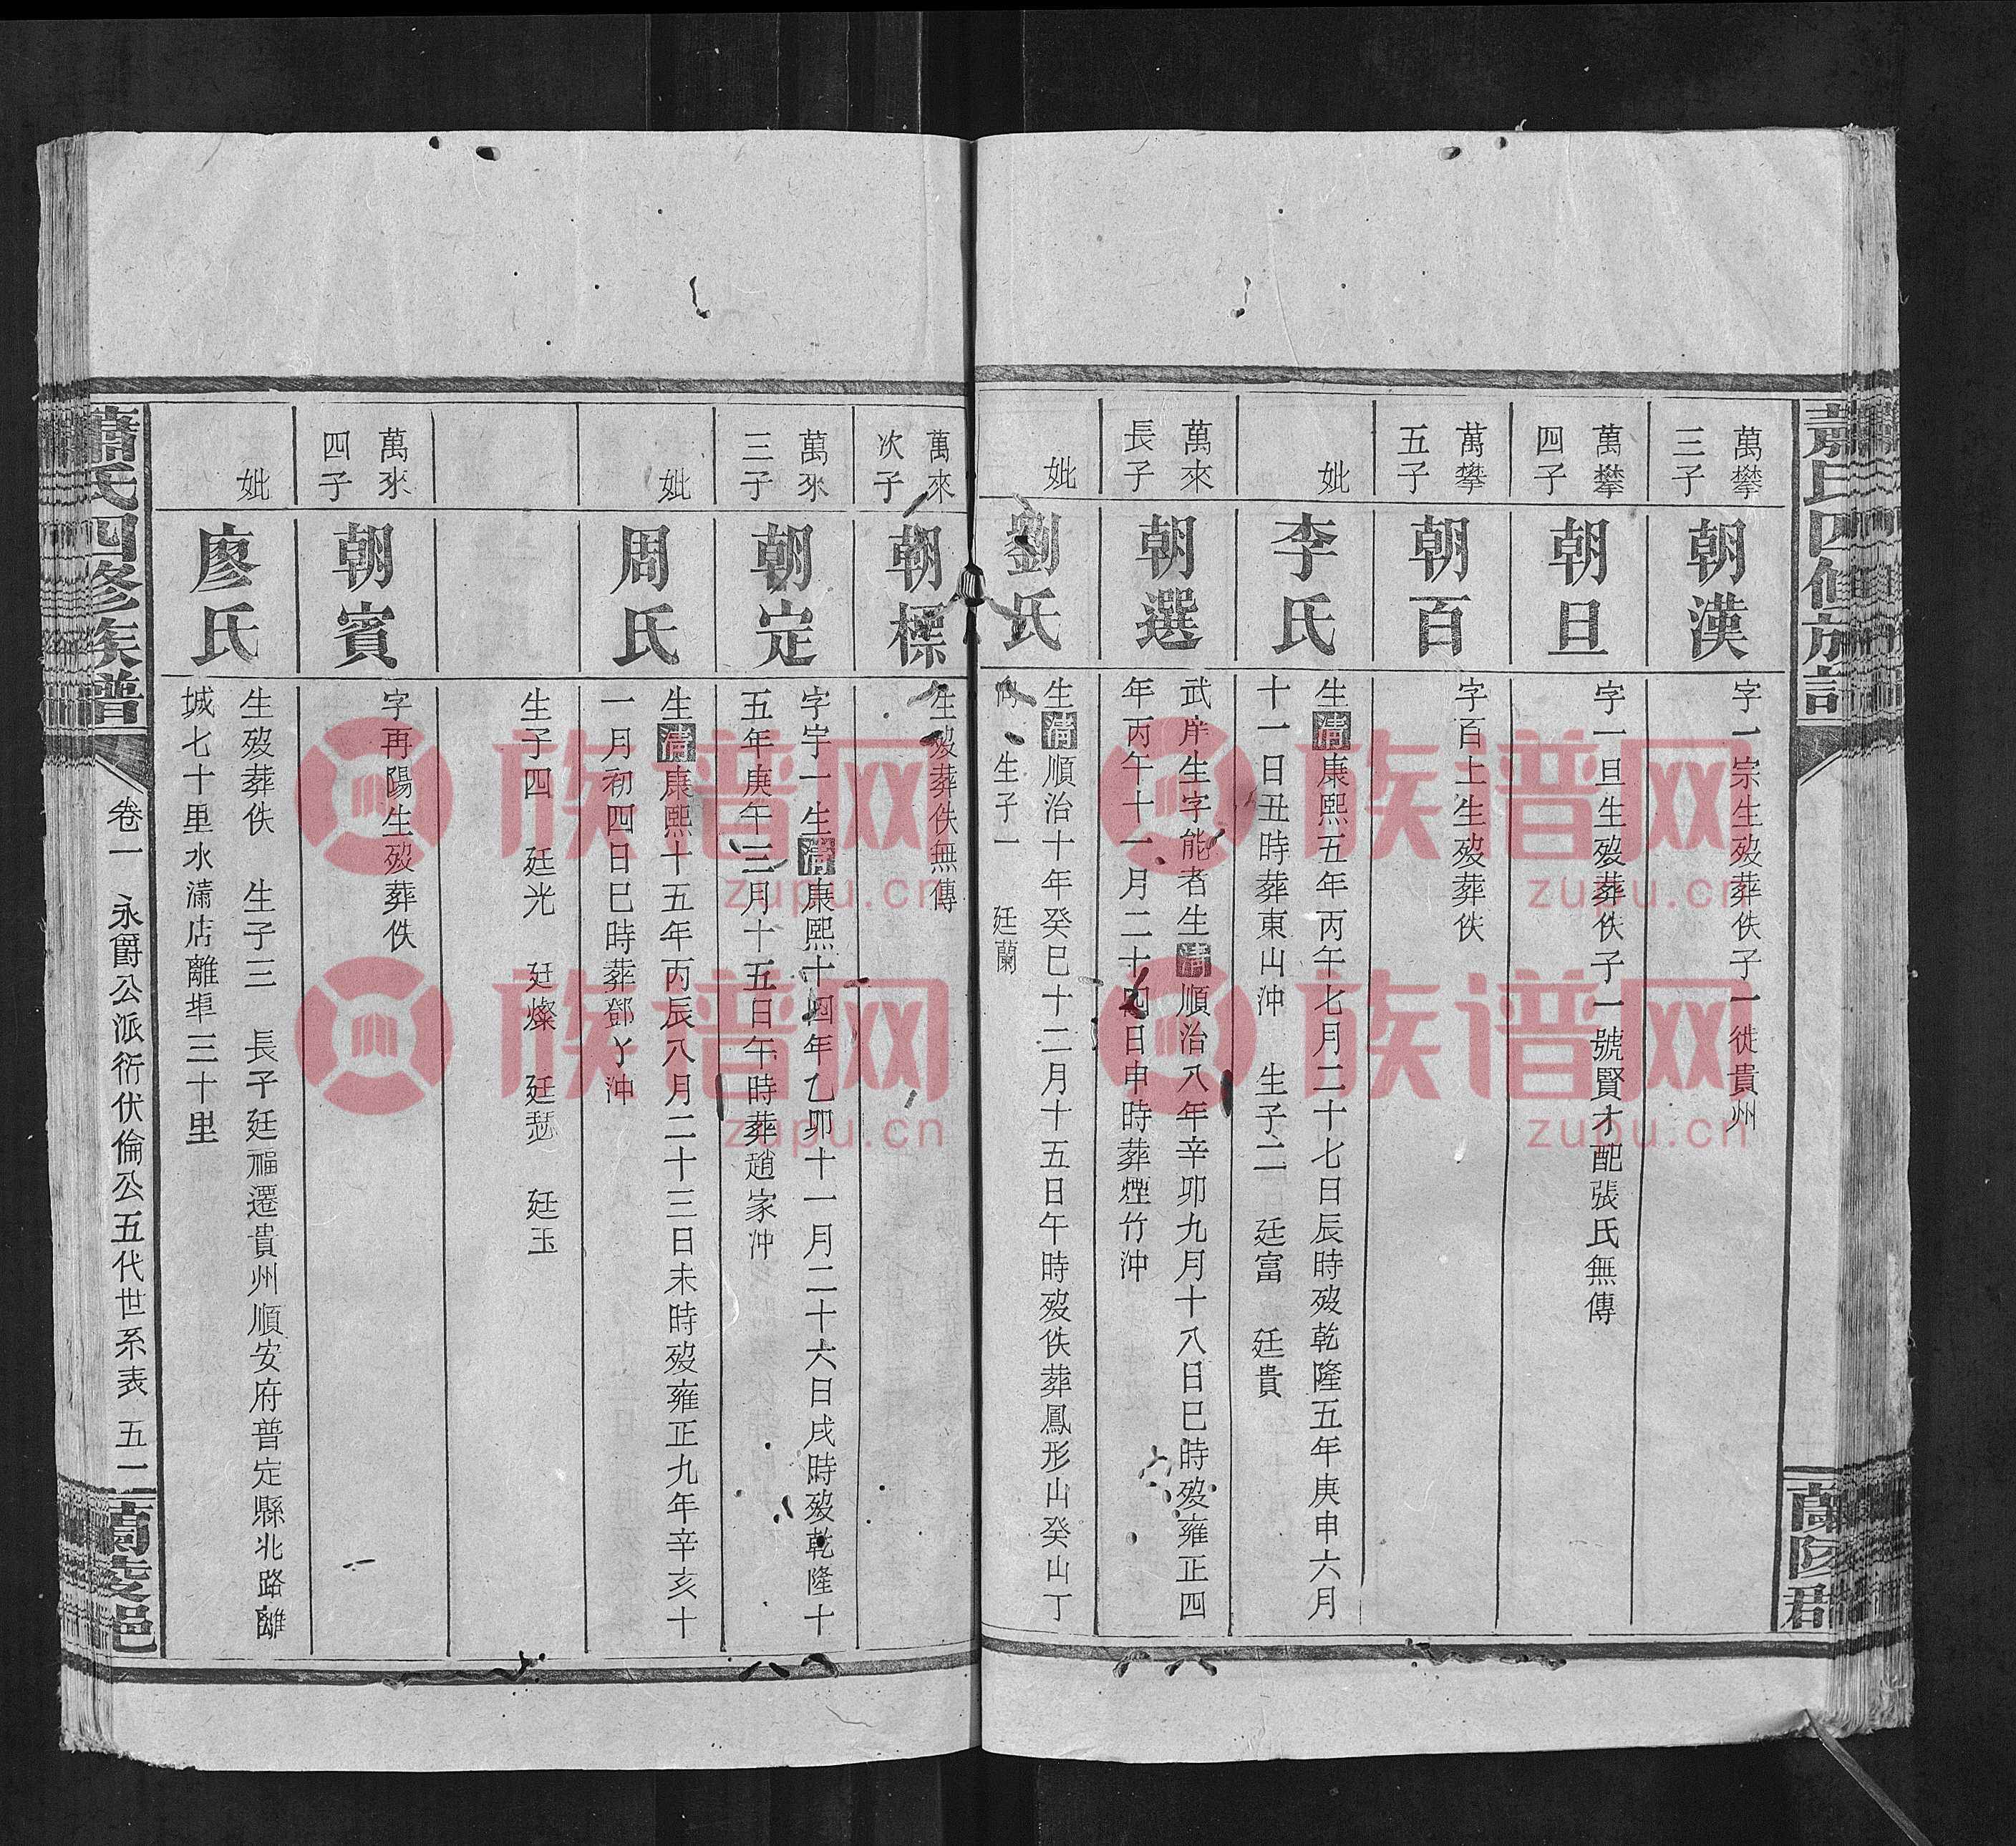 萬攀
三子
朝漢
字一宗生歿葬佚子一徙貴州
萬攀
四子
朝旦
字一旦生歿葬佚子一號賢才配張氏無傳
萬攀
五子
朝百
字百士生歿葬佚
妣
李氏
生清康熙五年丙午七月二十七日辰時歿乾隆五年庚申六月
十一日丑時葬東山沖 生子二 廷富 廷貴
萬來
長子
朝選
武庠生字能者生清順治八年辛卯九月十八日巳時歿雍正四
年丙午十一月二十四日申時葬煙竹沖
妣
劉氏
生清順治十年癸巳十二月十五日午時歿佚葬鳳形山癸山丁
向 生子一 廷蘭
萬來
次子
朝標
生歿葬佚無傳
萬來
三子
朝定
字宇一生清康熙十四年乙卯十一月二十六日戌時歿乾隆十
五年庚午三月十五日午時葬趙家沖
妣
周氏
生清康熙十五年丙辰八月二十三日未時歿雍正九年辛亥十
一月初四日巳時葬鄧丫沖
生子四 廷光 廷燦 廷瑟 廷玉
萬來
四子
朝賓
字再陽生歿葬佚
妣
廖氏
生歿葬佚 生子三 長子廷福遷貴州順安府普定縣北路離
城七十里水潚店離埠三十里
蕭氏四修族譜
卷一 永爵公派衍伏倫公五代世系表 五二
族谱网
zupu.cn
族谱网
zupu.cn
族谱网
zupu.cn
族谱网
zupu.cn